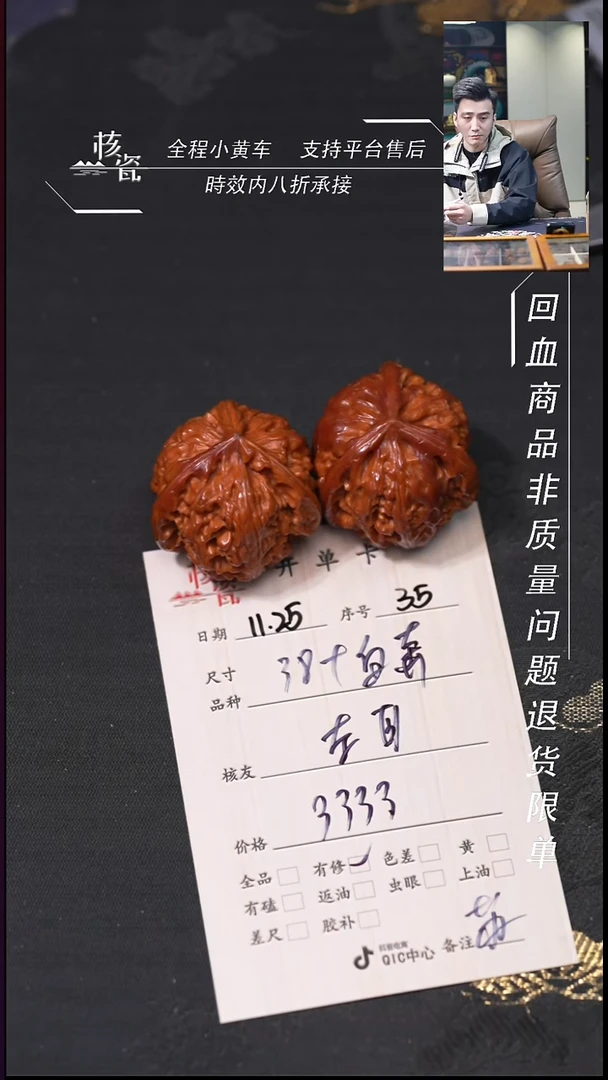 核瓷
全程小黄车 支持平台售后
時效内八折承接
回血商品非质量问题退货限单
核瓷 开单卡
日期 11.25 序号 35
尺寸 38+
品种
核友 左耳
价格 3333
全品 有修 色差 黄
有磕 返油 虫眼 上油
差尺 胶补
抖音电商
QIC中心 备注